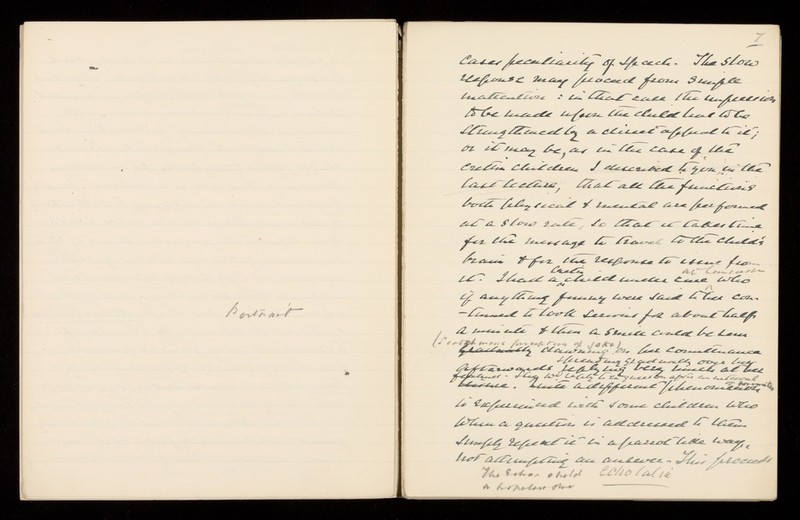 Portrait
7
cases peculiarity of speech. The slow
response may proceed from simple
inattention: in that case the impression
to be made upon the child has to be
strengthened by a direct appeal to it;
or it may be, as in the case of the
cretin children I described to you in the
last lecture, that all the functions
both physical & mental are performed
at a slow rate, so that it takes time
for the message to travel to the child's
brain & for the response to issue from
it. I had a child under care who
if anything funny were said to her con-
-tinued to look serious for about half
a minute & then a smile could be seen
gradually dawning on her countenance
spreading gradually over her
afterwards replying very much at her
leisure. Quite a different phenomenon
is experienced with some children who
when a question is addressed to them
simply repeat it in a parrot like way,
not attempting an answer. This proceeds
The Echo child Echolalia